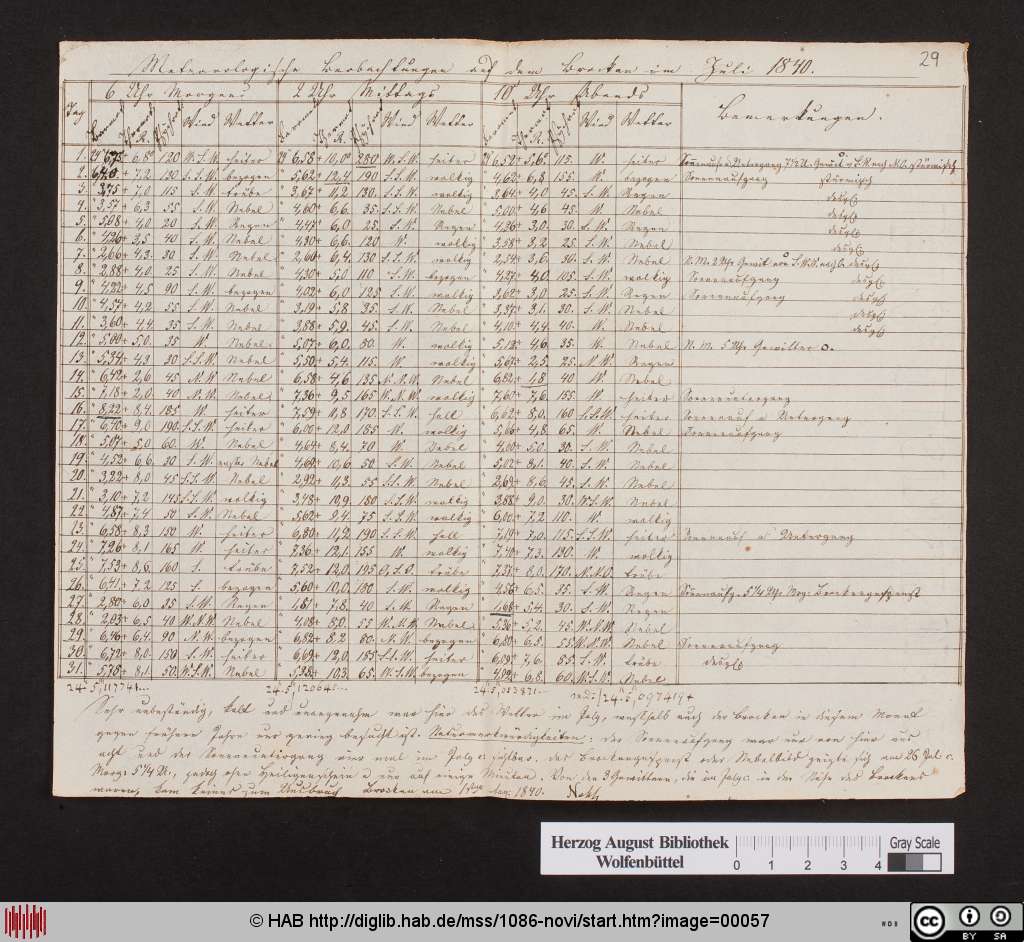 Meteorologische Beobachtungen auf dem Brocken im Juli 1840.
29
Tag 6 Uhr Morgens 2 Uhr Mittags 10 Uhr Abends Bemerkungen.
Wind Wetter Wind Wetter Wind Wetter
1. 6,8 120 W.S.W. heiter 6,58 + 10,0 280 W.S.W. heiter 6,52 + 5,6 115. W. heiter
2. + 7,2 130 S.S.W. bezogen 5,62 + 12,4 190 S.S.W. wolkig + 6,8 155. W. bezogen Sonnenaufgang stürmisch
3. 3,75 + 7,0 115 S.W. trübe 3,67 + 11,2 130. S.S.W. wolkig 3,64 + 4,0 45. S.W. Regen desgl.
4. 3,57 + 6,3 55 S.W. Nebel 4,60 + 6,6 35. S.S.W. Nebel 5,00 + 4,6 45. W. Nebel desgl.
5. 5,08 + 4,0 20 S.W. Regen 4,47 + 6,0 25. S.W. Regen 4,36 + 3,0 30. S.W. Regen desgl.
6. 4,26 + 3,5 40 S.W. Nebel 4,30 + 6,6 120 W. wolkig 3,58 + 3,2 25. S.W. Nebel desgl.
7. 2,66 + 4,3 30 S.W. Nebel 2,60 + 6,4 130 S.S.W. wolkig 2,54 + 3,6 30. S.W. Nebel desgl.
8. 2,88 + 4,0 25 S.W. Nebel 4,30 + 5,0 110 S.W. bezogen 4,27 + 4,0 105. S.W. wolkig Sonnenaufgang desgl.
9. 4,22 + 4,5 90 S.W. bezogen 4,02 + 6,0 125 S.W. wolkig 3,62 + 3,0 25. S.W. Regen Sonnenaufgang desgl.
10. + 4,2 55 S.W. Nebel 3,19 + 5,8 35. S.W. Nebel 3,37 + 3,1 30. S.W. Nebel desgl.
11. 3,60 + 4,4 35 S.W. Nebel 3,88 + 5,9 45. S.W. Nebel 4,10 + 4,4 40. W. Nebel desgl.
12. 5,00 + 5,0 35 W. Nebel 5,07 + 6,0 80. W. wolkig 5,12 + 4,6 35. W. Nebel N.M. 5 Uhr Gewitter O.
13. 5,34 + 4,3 30 S.S.W. Nebel 5,50 + 5,4 115. W. wolkig 5,67 + 2,5 25. N.W. Regen
14. 6,42 + 2,6 45 N.W. Nebel 6,58 + 4,6 135 N.N.W. Nebel 6,82 + 1,8 40 W. Nebel
15. 7,18 + 2,0 40 N.W. Nebel 7,36 + 9,5 165 W.N.W. wolkig 7,60 + 7,6 155. W. heiter Sonnenuntergang
16. 8,22 + 8,4 185 W. heiter 7,59 + 11,8 170. S.S.W. hell 6,62 + 8,0 160 S.S.W. heiter Sonnenauf u Untergang
17. 6,40 + 9,0 190 S.S.W. heiter 6,00 + 12,0 185 W. wolkig 5,66 + 4,8 65. W. Nebel Sonnenaufgang
18. 5,07 + 5,0 60 W. Nebel 4,64 + 8,4 70 W. Nebel 4,60 + 5,0 30. S.W. Nebel
19. 4,52 + 6,6 30 S.W. Nebel 4,62 + 10,6 50. S.W. Nebel 5,02 + 8,1 40. S.W. Nebel
20. 3,22 + 8,0 45 S.S.W. Nebel 2,92 + 11,3 55 S.S.W. Nebel 2,69 + 8,6 45. S.W. Nebel
21. 3,10 + 7,2 145 S.S.W. wolkig 3,48 + 10,9 180 S.S.W. wolkig 3,88 + 9,0 30. W.S.W. Nebel
22. 4,87 + 7,4 50 S.W. Nebel 5,62 + 9,4 75 S.S.W. wolkig 6,00 + 7,2 110. W. wolkig
23. 6,58 + 8,3 150 W. heiter 6,80 + 11,2 190 S.S.W. hell 7,19 + 7,0 115. S.S.W. heiter Sonnenauf u Untergang
24. 7,26 + 8,1 165 W. heiter 7,36 + 12,1 155 W. wolkig 7,40 + 7,3 130. W. wolkig
25. 7,53 + 8,6 160 S. trübe 7,52 + 12,0 195 O.S.O. trübe 7,37 + 8,0 170. N.N.O. trübe
26. 6,41 + 7,2 125 S. bezogen 5,60 + 10,0 150 S.W. wolkig 4,56 + 6,5 35. S.W. Regen Sonnenaufg. 5¼ Uhr Morg. Brockengespenst
27. 2,80 + 6,0 35 S.W. Regen 1,61 + 7,8 40 S.W. Regen 1,68 + 5,4 30. S.W. Regen
28. 2,83 + 6,5 40 W.N.W. Nebel 4,08 + 8,0 55 W.N.W. Nebel 5,36 + 5,2 45. W.N.W. Nebel
29. 6,46 + 6,4 90 N.W. bezogen 6,82 + 8,2 80. N.W. bezogen 6,80 + 6,5 55. W.N.W. Nebel Sonnenaufgang
30. 6,72 + 8,0 150 S.W. heiter 6,69 + 12,0 185 S.S.W. heiter + 7,6 85. S.W. trübe desgl.
31. 5,78 + 8,1 50 W.S.W. Nebel 5,38 + 10,3 65. W.S.W. bezogen 4,92 + 6,8 60. W.S.W. Nebel
24. 5,117741... 24. 5,120645... 24. 5,053871... med: 24. 5,097419+
Sehr unbeständig, kalt und unangenehm war hier das Wetter im July, weshalb auch der Brocken in diesem Monat
gegen frühere Jahre nur gering besucht ist. Naturmerkwürdigkeiten: der Sonnenaufgang war nur von hier aus
acht und der Sonnenuntergang nur mal im July c. sichtbar, das Brockengespenst oder Nebelbild zeigte sich am 26 Jul. c.
Morgs 5¼ U., jedoch ohne Heiligenschein u nur auf einige Minuten. Von den 3 Gewittern, die im July c. in der Nähe des Brockens
waren, kam keines zum Ausbruch Brocken am 1sten Aug. 1840. Nehse
Herzog August Bibliothek
Wolfenbüttel
0 1 2 3 4
Gray Scale
© HAB http://diglib.hab.de/mss/1086-novi/start.htm?image=00057
HAB
cc BY SA